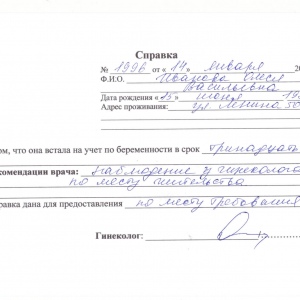 Справка
№ 1996 от « 14 » января 20
Ф.И.О. Иванова Олеся
Васильевна
Дата рождения «15» июня 19
Адрес проживания: ул Ленина 50
ом, что она встала на учет по беременности в срок тринадцать
комендации врача: наблюдение у гинеколога
по месту жительства
равка дана для предоставления по месту требования
Гинеколог: